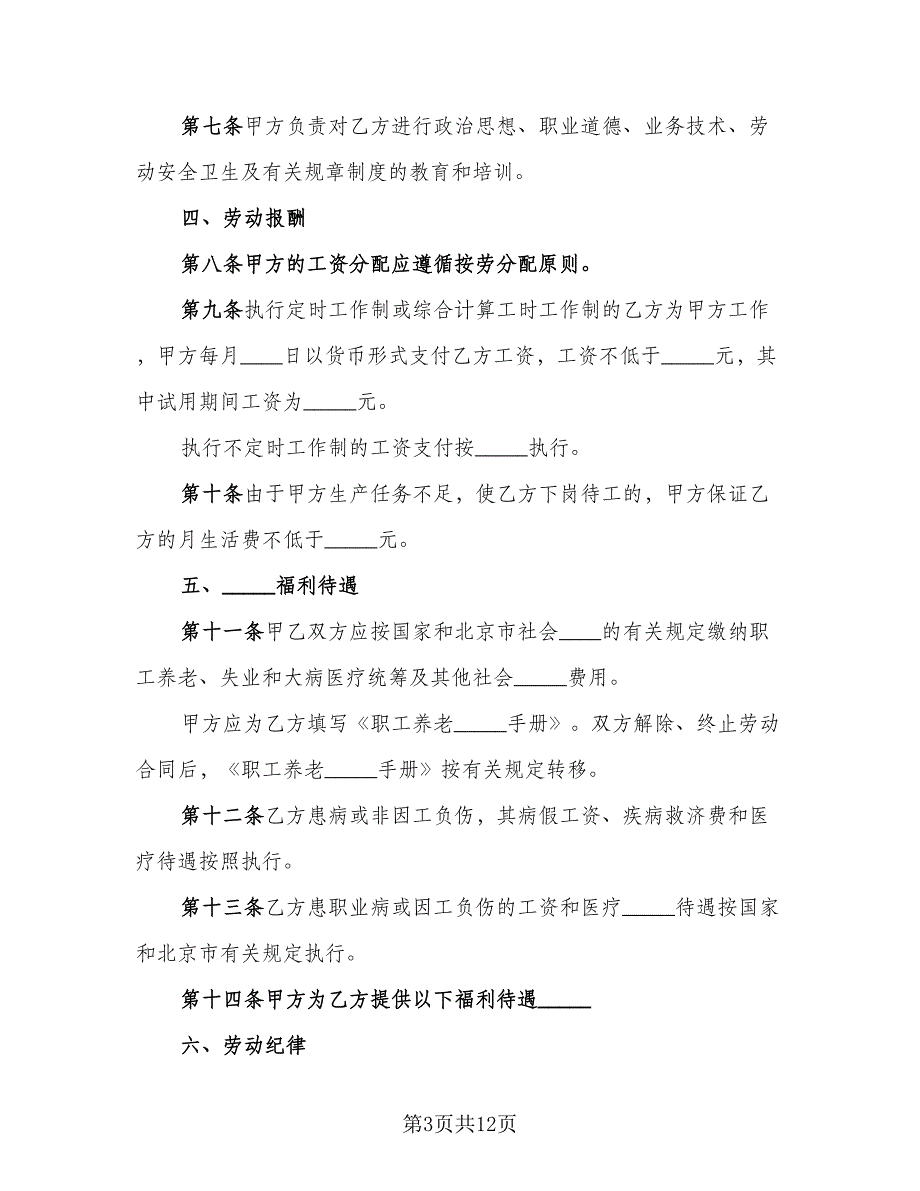 第七条甲方负责对乙方进行政治思想、职业道德、业务技术、劳
动安全卫生及有关规章制度的教育和培训。
四、劳动报酬
第八条甲方的工资分配应遵循按劳分配原则。
第九条执行定时工作制或综合计算工时工作制的乙方为甲方工作
，甲方每月____日以货币形式支付乙方工资，工资不低于_____元，其
中试用期间工资为_____元。
执行不定时工作制的工资支付按_____执行。
第十条由于甲方生产任务不足，使乙方下岗待工的，甲方保证乙
方的月生活费不低于_____元。
五、_____福利待遇
第十一条甲乙双方应按国家和北京市社会____的有关规定缴纳职
工养老、失业和大病医疗统筹及其他社会_____费用。
甲方应为乙方填写《职工养老_____手册》。双方解除、终止劳动
合同后，《职工养老_____手册》按有关规定转移。
第十二条乙方患病或非因工负伤，其病假工资、疾病救济费和医
疗待遇按照执行。
第十三条乙方患职业病或因工负伤的工资和医疗_____待遇按国家
和北京市有关规定执行。
第十四条甲方为乙方提供以下福利待遇_____
六、劳动纪律
第3页共12页